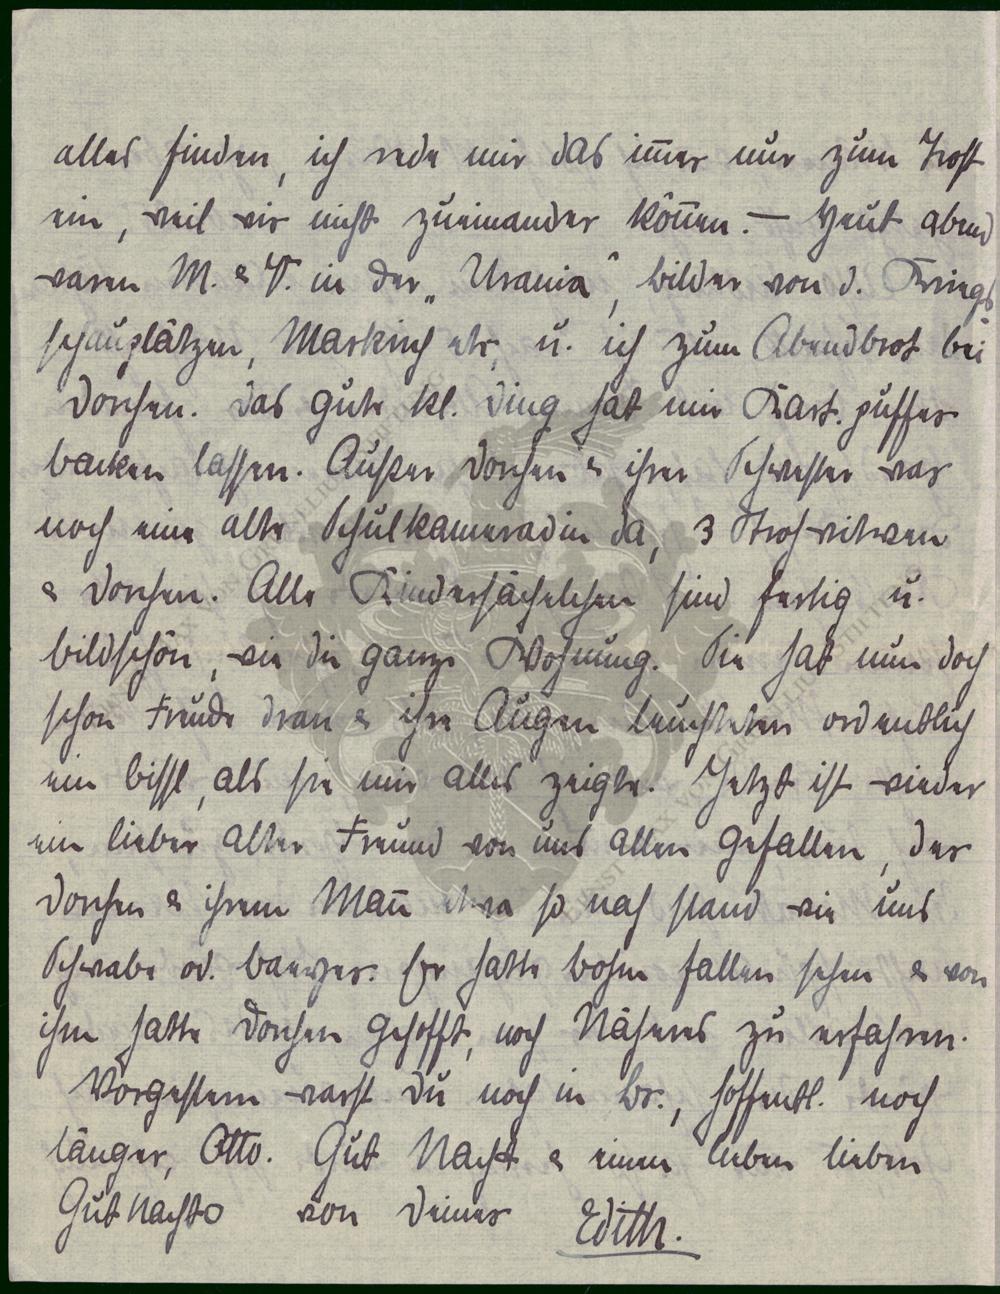 alles finden, ich rede mir das im̅er nur zum Trost
ein, weil wir nicht zueinander kön̅en. – Heut abend
waren M. & V. in der „Urania“, bilder von d. Kriegs
schauplätzen, Markirch etc, u. ich zum Abendbrot bei
Dorchen. Das gute kl. Ding hat mir Kart. puffer
backen lassen. Außer Dorchen & ihrer Schwester war
noch eine alte Schulkameradin da, 3 Strohwitwen
& Dorchen. Alle Kindersächelchen sind fertig u.
bildschön, wie die ganze Wohnung. Sie hat nun doch
schon Freude dran & ihre Augen leuchteten ordentlich
ein bissl, als sie mir alles zeigte. Jetzt ist wieder
ein lieber alter Freund von uns allen gefallen, der
Dorchen & ihrem Man̅ etwa so nah stand wie uns
Schwabe od. baeyer. Er hatte bohm fallen sehen & von
ihm hatte Dorchen gehofft, noch Näheres zu erfahren.
Vorgestern warst Du noch in br., hoffentl. noch
länger, Otto. Gut Nacht & einen lieben lieben
Gut Nacht o von Deiner Edith.